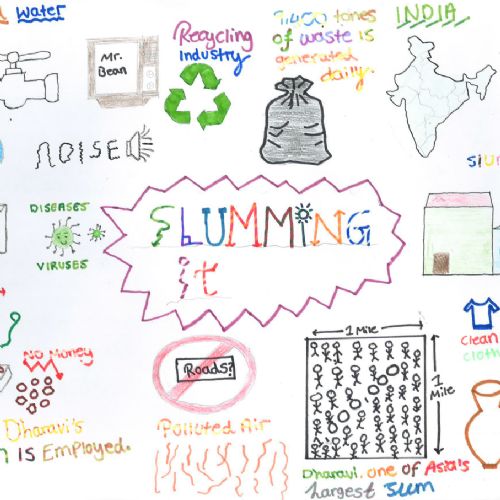 Water
Mr.
Bean
Recycling
Industry
tones
of waste is
generated
daily.
INDIA
NOISE
DISEASES
VIRUSES
SLUMMING
It
No Money
Dharavi's
is Employed.
Roads?
Polluted Air
1 Mile
1
Mile
Clean
Dharavi. one of Asia's
largest Slum